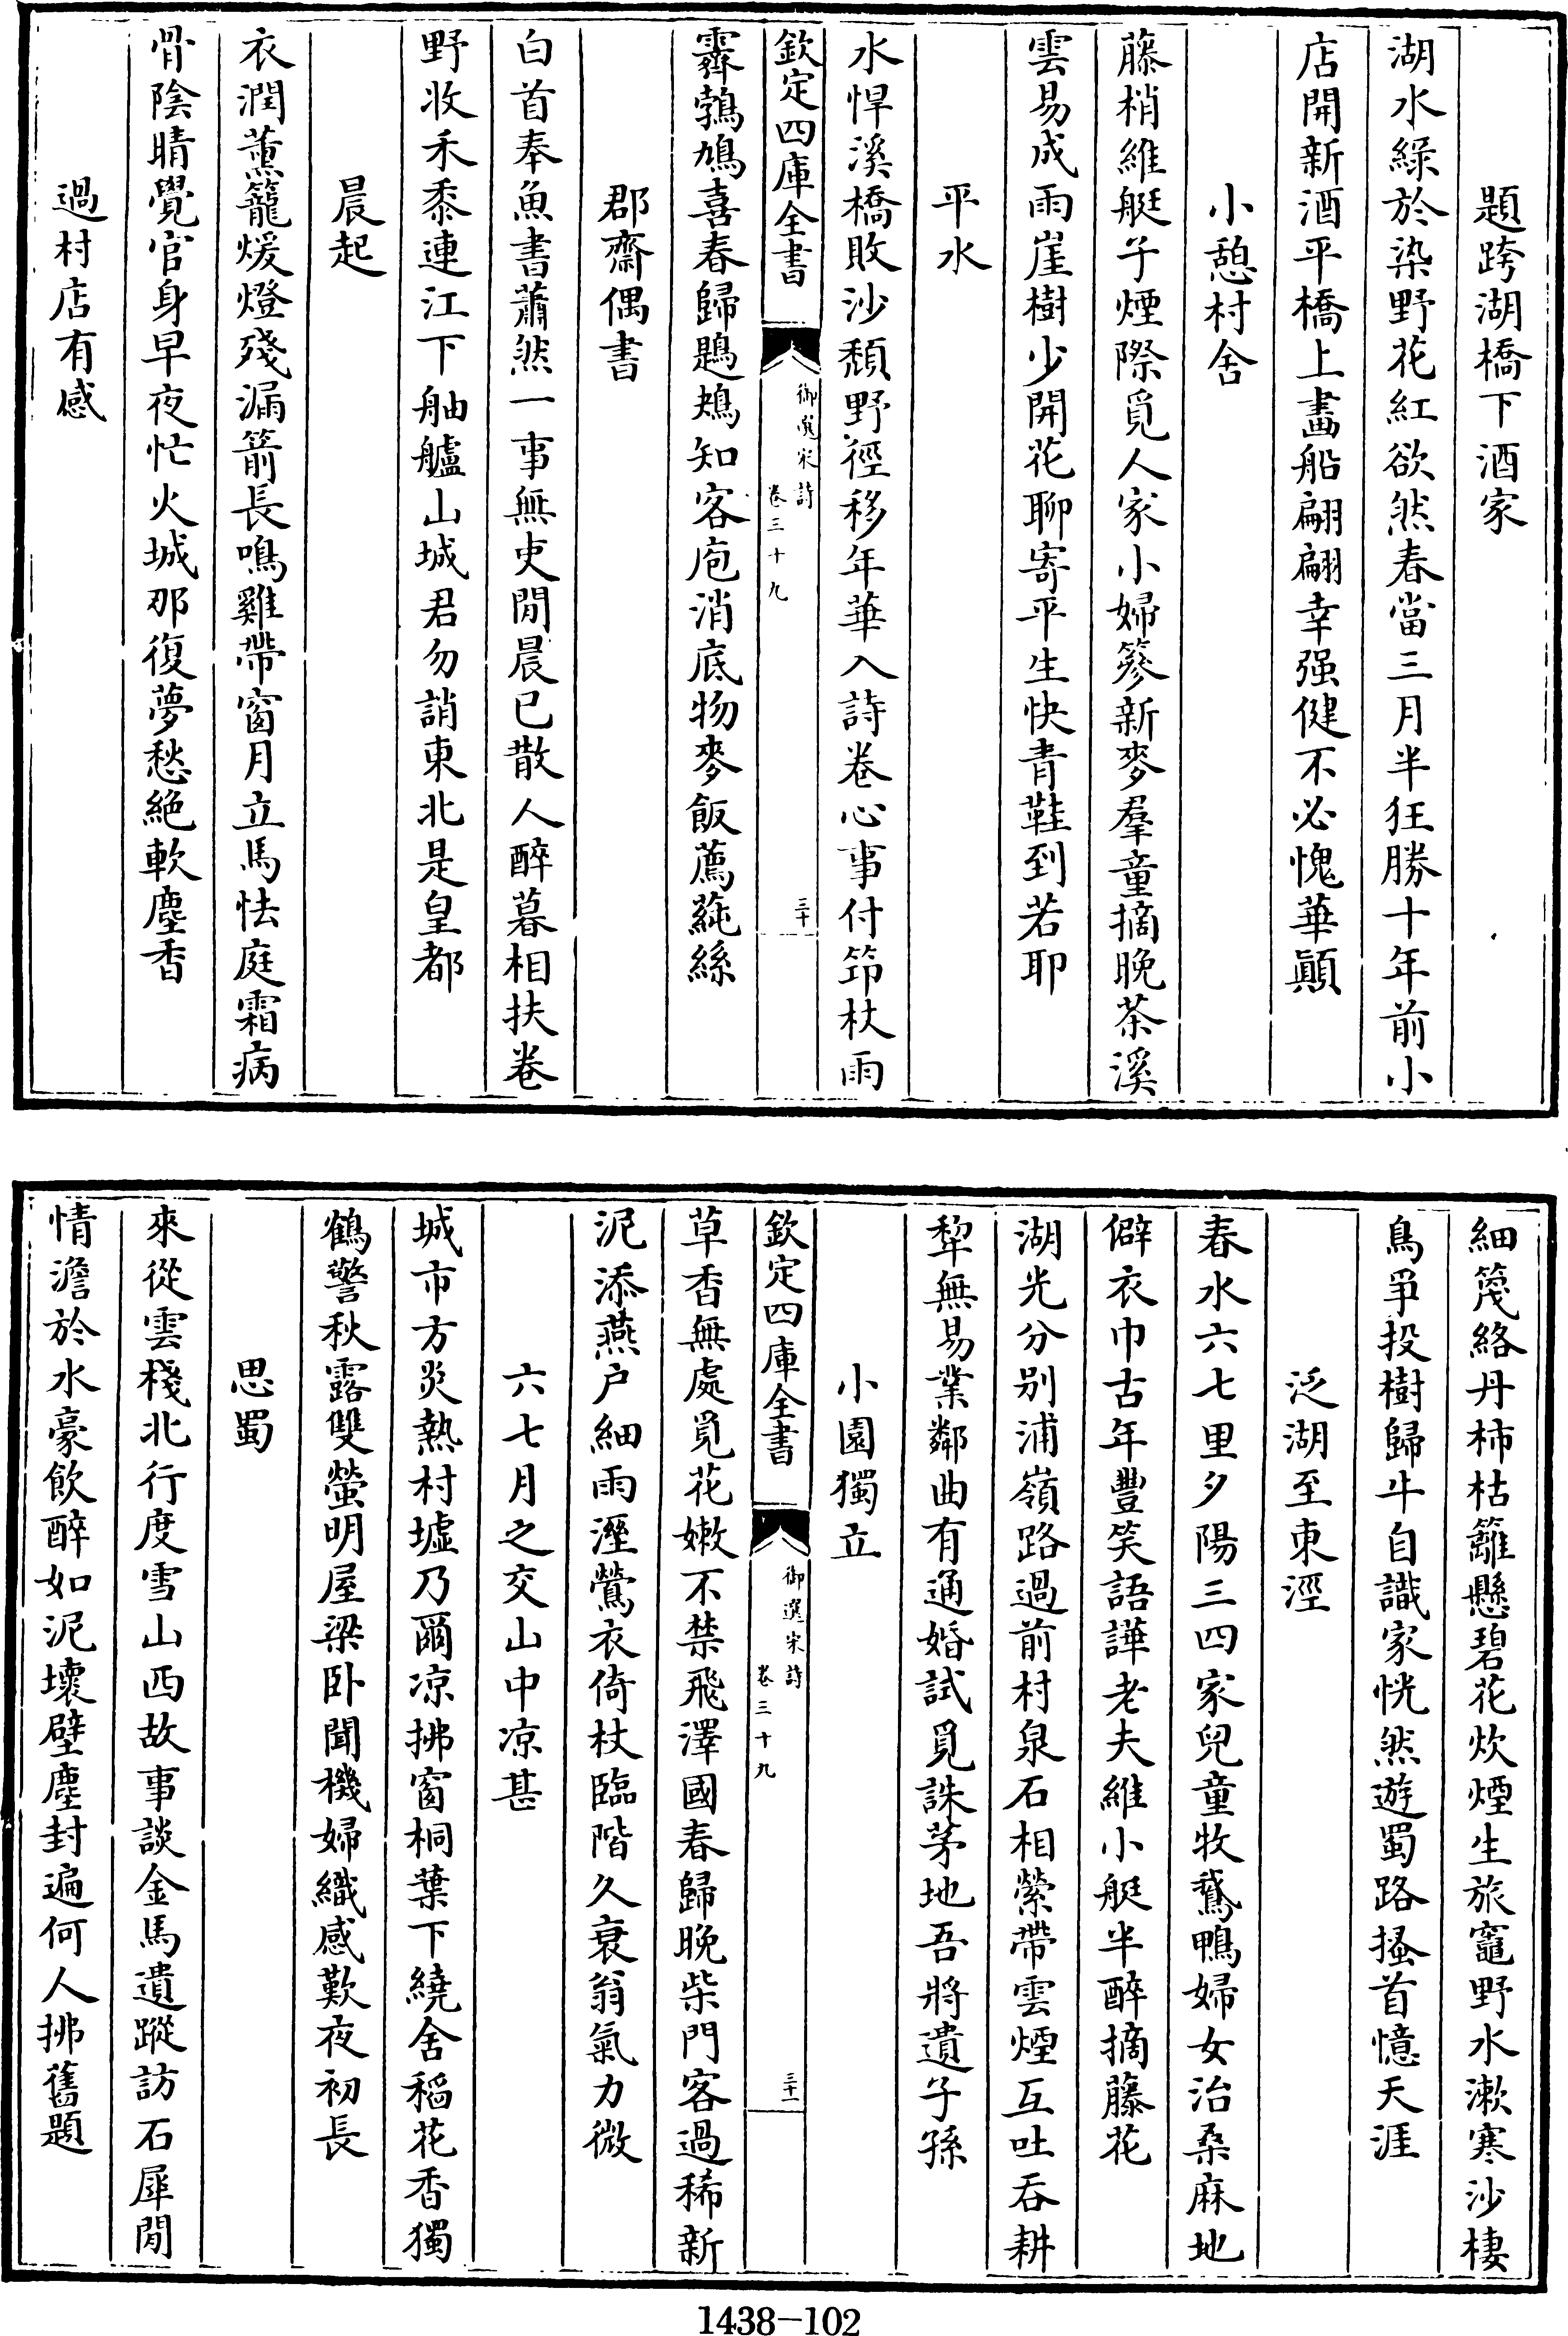 題跨湖橋下酒家
湖水綠於染野花紅欲然春當三月半狂勝十年前小
店開新酒平橋上畫船翩翩幸强健不必愧華顛
小憩村舍
藤梢維艇子煙際覓人家小婦簝新麥羣童摘晚茶溪
雲易成雨崖樹少開花聊寄平生快青鞋到若耶
平水
水悍溪橋敗沙頹野徑移年華入詩卷心事付筇杖雨
欽定四庫全書
御選宋詩
卷三十九
三十
霽鵓鳩喜春歸鶗鴂知客庖消底物麥飯薦蒓絲
郡齋偶書
白首奉魚書蕭然一事無吏閒晨已散人醉暮相扶卷
野收禾黍連江下舳艫山城君勿誚東北是皇都
晨起
衣潤薰籠煖燈殘漏箭長鳴雞帶窗月立馬怯庭霜病
骨陰晴覺官身早夜忙火城那復夢愁絕軟塵香
過村店有感
細篾絡丹柿枯籬懸碧花炊煙生旅竈野水漱寒沙棲
鳥爭投樹歸牛自識家恍然遊蜀路搔首憶天涯
泛湖至東涇
春水六七里夕陽三四家兒童牧鵞鴨婦女治桑麻地
僻衣巾古年豐笑語譁老夫維小艇半醉摘藤花
湖光分别浦嶺路過前村泉石相縈帶雲煙互吐吞耕
犂無易業鄰曲有通婚試覓誅茅地吾將遺子孫
小園獨立
欽定四庫全書
御選宋詩
卷三十九
三十一
草香無處覓花嫩不禁飛澤國春歸晚柴門客過稀新
泥添燕户細雨溼鶯衣倚杖臨階久衰翁氣力微
六七月之交山中凉甚
城市方炎熱村墟乃爾凉拂窗桐葉下繞舍稻花香獨
鶴警秋露雙螢明屋梁卧聞機婦織感歎夜初長
思蜀
來從雲棧北行度雪山西故事談金馬遺蹤訪石犀閒
情澹於水豪飲醉如泥壞壁塵封遍何人拂舊題
1438-102